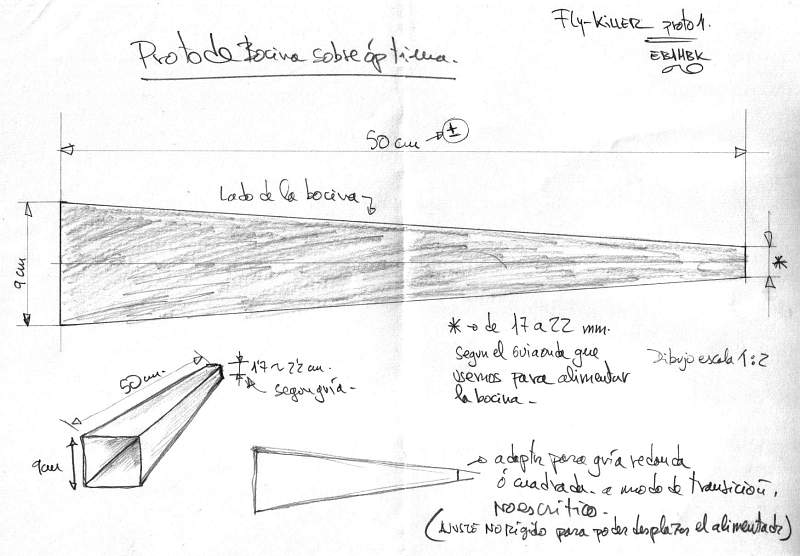 Fly-KILLER proto 1.
EB1HBK
Proto de Bocina sobre óptima.
50 cm ±
Lado de la bocina
9 cm
*
* → de 17 a 22 mm.
segun el guiaonda que
usemos para alimentar
la bocina -
Dibujo escala 1:2
50 cm.
17 ~ 22 cm.
segun guía -
9 cm
adaptar para guía redonda
ó cuadrada - a modo de transición,
no es crítico -
(AJUSTE NO RÍGIDO para poder desplazar el alimentador)